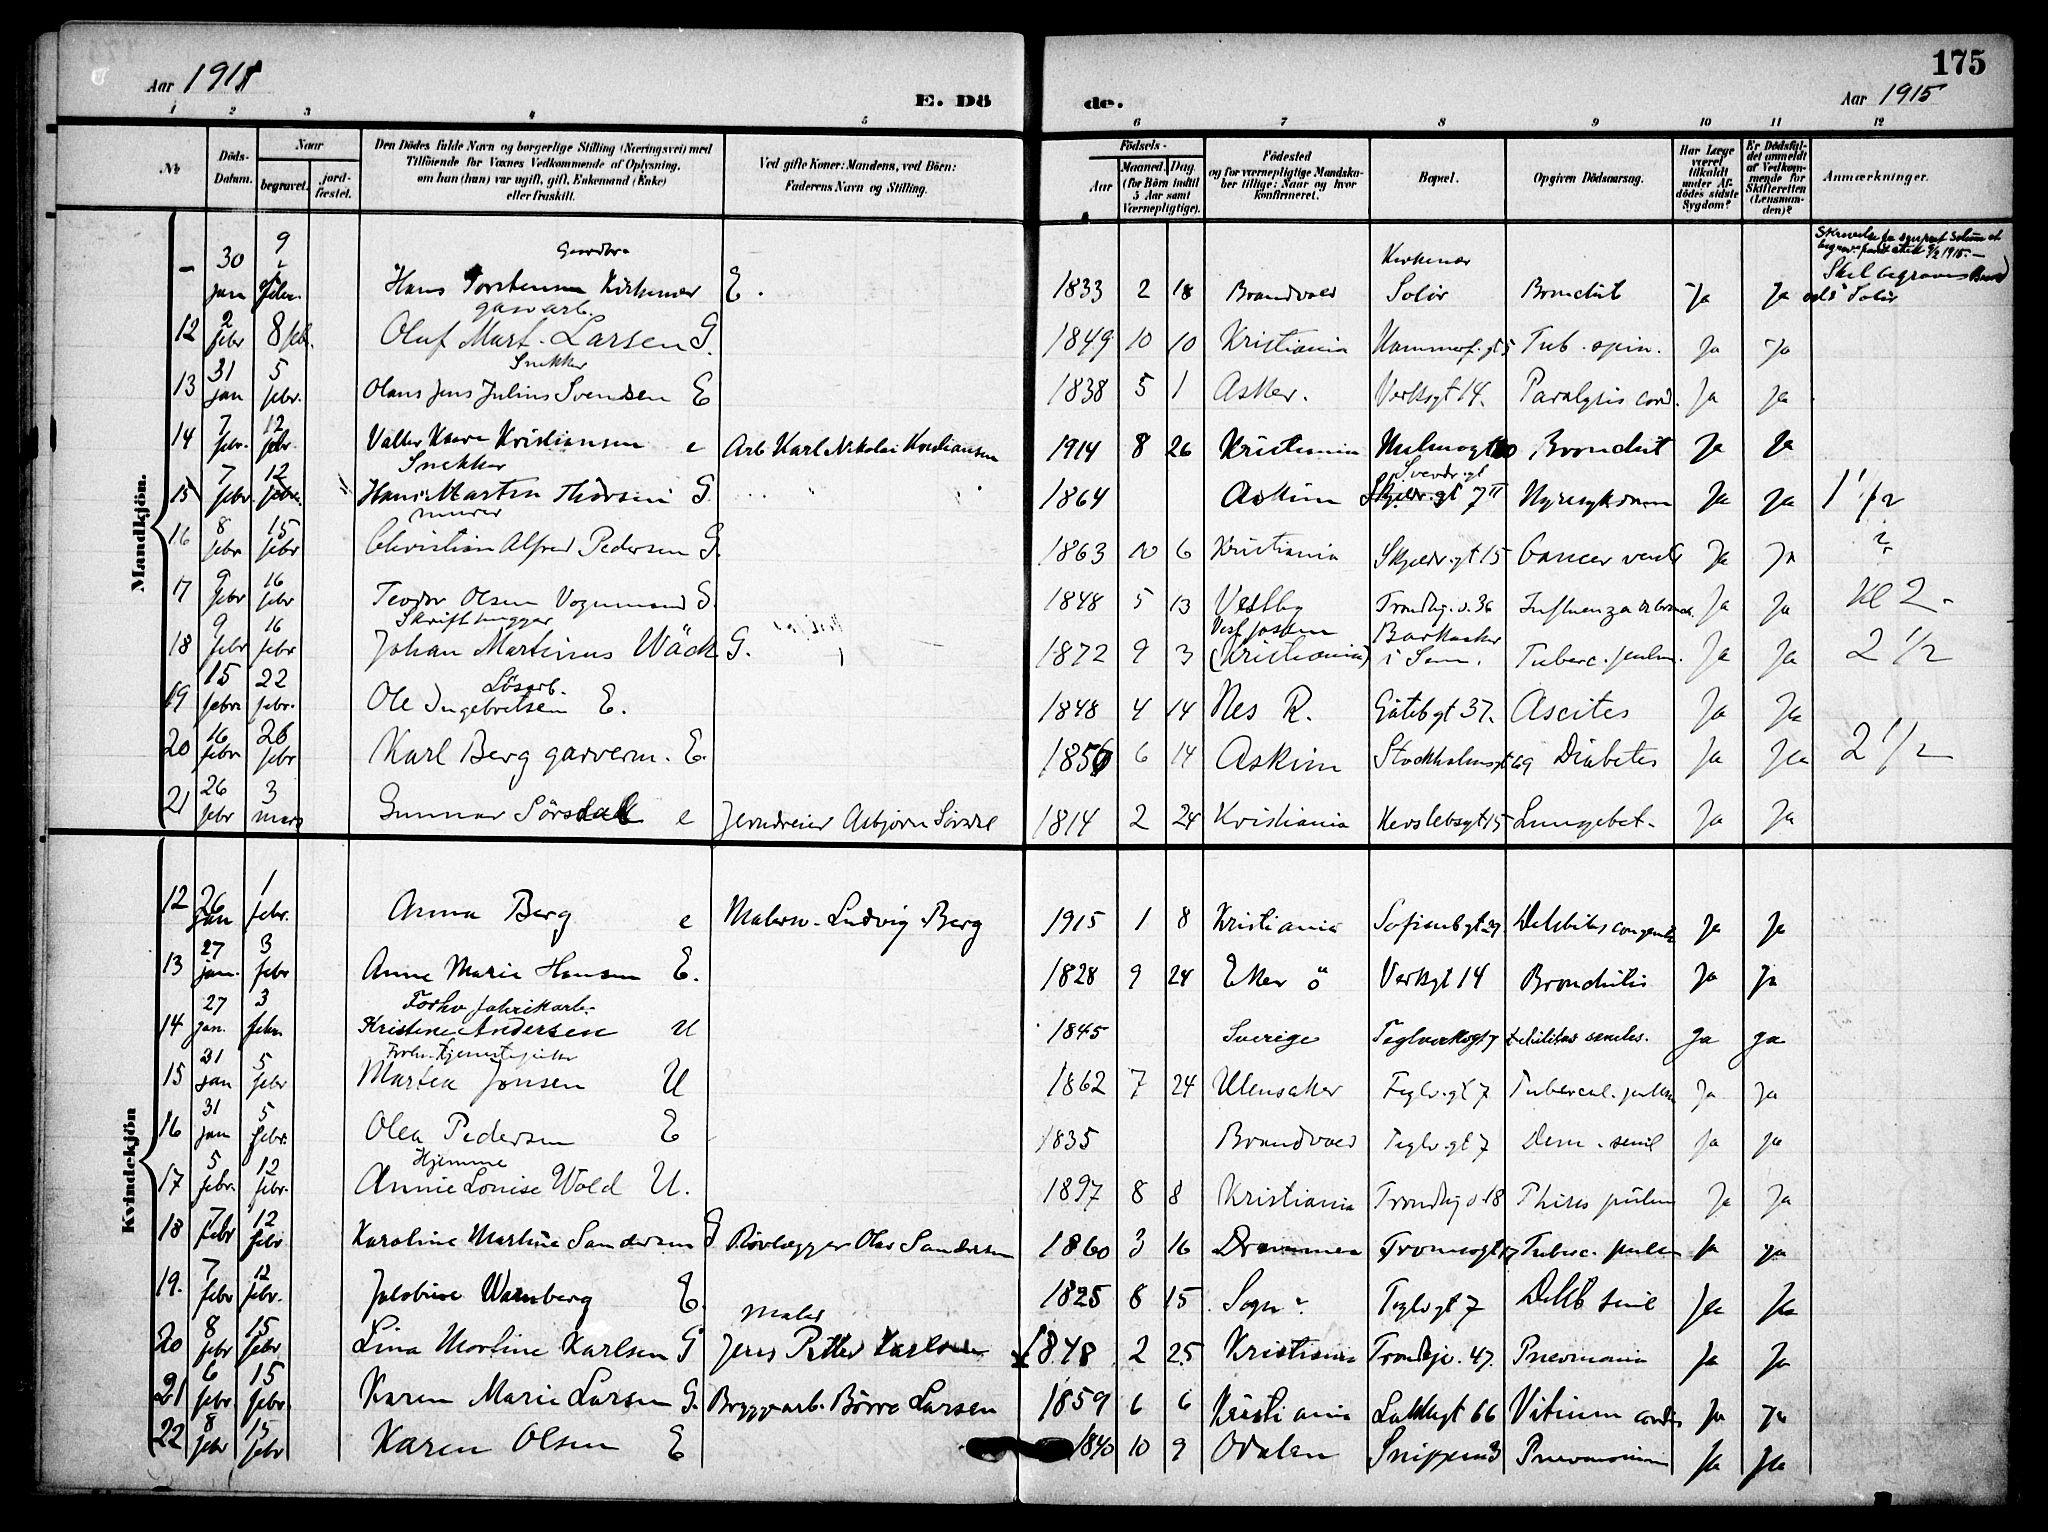 175
Aar 1915
E. Dö
de.
Aar 1915
1 2 3 4 5 6 7 8 9 10 11 12
No
Döds-Datum.
Naar
begravet.
jord-fæstet.
Den Dödes fulde Navn og borgerlige Stilling (Næringsvei) med
Tilföiende for Voxnes Vedkommende af Oplysning,
om han (hun) var ugift, gift, Enkemand (Enke)
eller fraskilt.
Ved gifte Koner: Mandens, ved Börn:
Faderens Navn og Stilling.
Födsels-
Aar
Maaned. Dag.
(for Börn indtil
5 Aar samt
Værnepligtige).
Födested
og for værnepligtige Mandska-
ber tillige: Naar og hvor
konfirmeret.
Bopæl.
Opgiven Dödsaarsag.
Har Læge
været
tilkaldt
under Af-
dödes sidste
Sygdom?
Er Dödsfal-
det anmeldt
af Vedkom-
mende for
Skifteretten
(Lensman-
den)?
Anmærkninger.
Mandkjön.
30 jan 9 febr. Gaardbr. Hans Torstensen Kirkenær E. 1833 2 18 Brandvold Kirkenær Solör Bronchit Ja Ja
12 2 febr 8 feb. gasvarb. Oluf Mart. Larsen G. 1849 10 10 Kristiania Hammerf.gt 5 Tub. spin. Ja Ja
13 31 jan 5 febr. Snekker Olaus Jens Julius Svendsen E 1838 5 1 Asker. Verksgt 14. Paralysis cord. Ja Ja
14 7 febr. 12 febr. Valter Kaare Kristiansen e Arb Karl Nikolai Kristiansen 1914 8 26 Kristiania Bronchit Ja Ja
15 7 febr 12 febr. Snekker Hans Martin Thorsen G. 1864 Askim 7 II Nyresykdom Ja Ja 1 1/2
16 8 febr 15 febr murer Christian Alfred Pedersen G. 1863 10 6 Kristiania Skjeldr.gt 15 Cancer ventr Ja Ja 2
17 9 febr 16 febr Teodor Olsen Vognmand G. 1848 5 13 Vestby Trondhj.v. 36 Influenza Ja Ja Kl 2-
18 9 febr 16 febr Skrifthugger Johan Martinus Wäck G. 1872 9 3 (Kristiania) i Sem. Tuberc. pulm. Ja Ja 2 1/2
19 15 febr 22 febr. Lösarb. Ole Ingebretsen E. 1848 4 14 Nes R. Götebgt 37. Ascites Ja Ja
20 16 febr 26 febr Karl Berg garverm. E. 1856 6 14 Askim Stockholmsgt 69 Diabetes Ja Ja 2 1/2
21 26 febr 3 mars Gunnar Sörsdal e Jerndreier Asbjørn Sörsdal 1814 2 24 Kristiania Herslebsgt 15 Lungebet. Ja Ja
Kvindekjön
12 26 jan 1 febr. Anna Berg e Malersv. Ludvig Berg 1915 1 8 Kristiania Sofienbgt Debilitas congenita Ja Ja
13 27 jan. 3 febr Anne Marie Hansen E. 1828 9 24 Eker ö Verksgt 14 Bronchitis Ja Ja
14 27 jan. 3 febr. Forhv fabrikkarb. Kristine Andersen U 1845 Sverige Teglverksgt 7 Debilitas seniles. Ja Ja
15 31 jan 5 febr Forhv. tjenestepike Martea Jonsen U 1862 7 24 Ullensaker Teglv.gt 7 Tubercul. pulm Ja Ja
16 31 jan 5 febr. Olea Pedersen E 1835 Brandvold Teglv.gt 7 Dem. senil Ja Ja
17 5 febr. 12 febr. Hjemme Annie Louise Wold U. 1897 8 8 Kristiania Trondhj v 18 Phtisis pulm Ja Ja
18 7 febr 12 febr Karoline Martine Sandersen G Rörlægger Olav Sandersen 1860 3 16 Drammen Tromsogt 17 Tuberc. pulm Ja Ja
19. 7 febr 12 febr. Jakobine Warnberg E. 1825 8 15 Sogn Teglvgt 7 Debb senil Ja Ja
20 8 febr 15 febr Lina Martine Karlsen G Maler Jens Petter Karlsen 1848 2 25 Kristiania Trondhjv. 47. Pneumonia Ja Ja
21 6 febr. 15 febr. Karen Marie Larsen G. Bryggarb. Börre Larsen 1859 6 6 Kristiania Lakkegt 66 Vitium cordis Ja Ja
22 8 febr 15 febr Karen Olsen E 1840 10 9 Odalen Snippen 3 Pneumonia Ja Ja